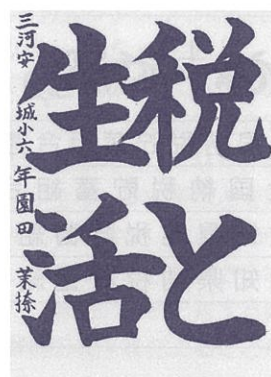 税と
生活
三河安城小六年園田茉捺